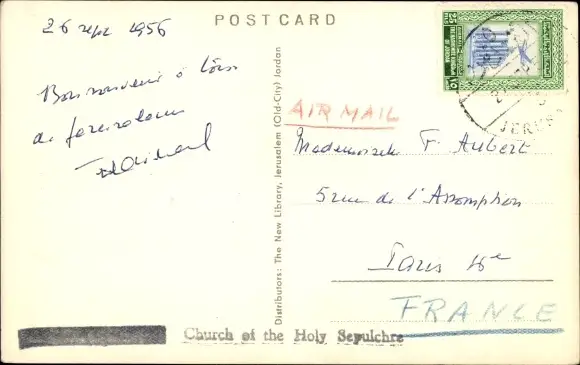 POST CARD
26 sept 1956
Bon souvenir à tous
de Jérusalem
AIR MAIL
Mademoiselle F. Aubert
5 rue de l'Assomption
Paris 16e
FRANCE
Distributors: The New Library, Jerusalem (Old-City) Jordan
Church of the Holy Sepulchre
JERUS